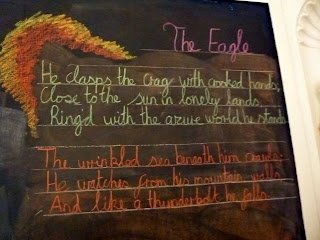 The Eagle
He clasps the crag with crooked hands;
Close to the sun in lonely lands,
Ring'd with the azure world he stands.
The wrinkled sea beneath him crawls:
He watches from his mountain walls
And like a thunderbolt he falls.